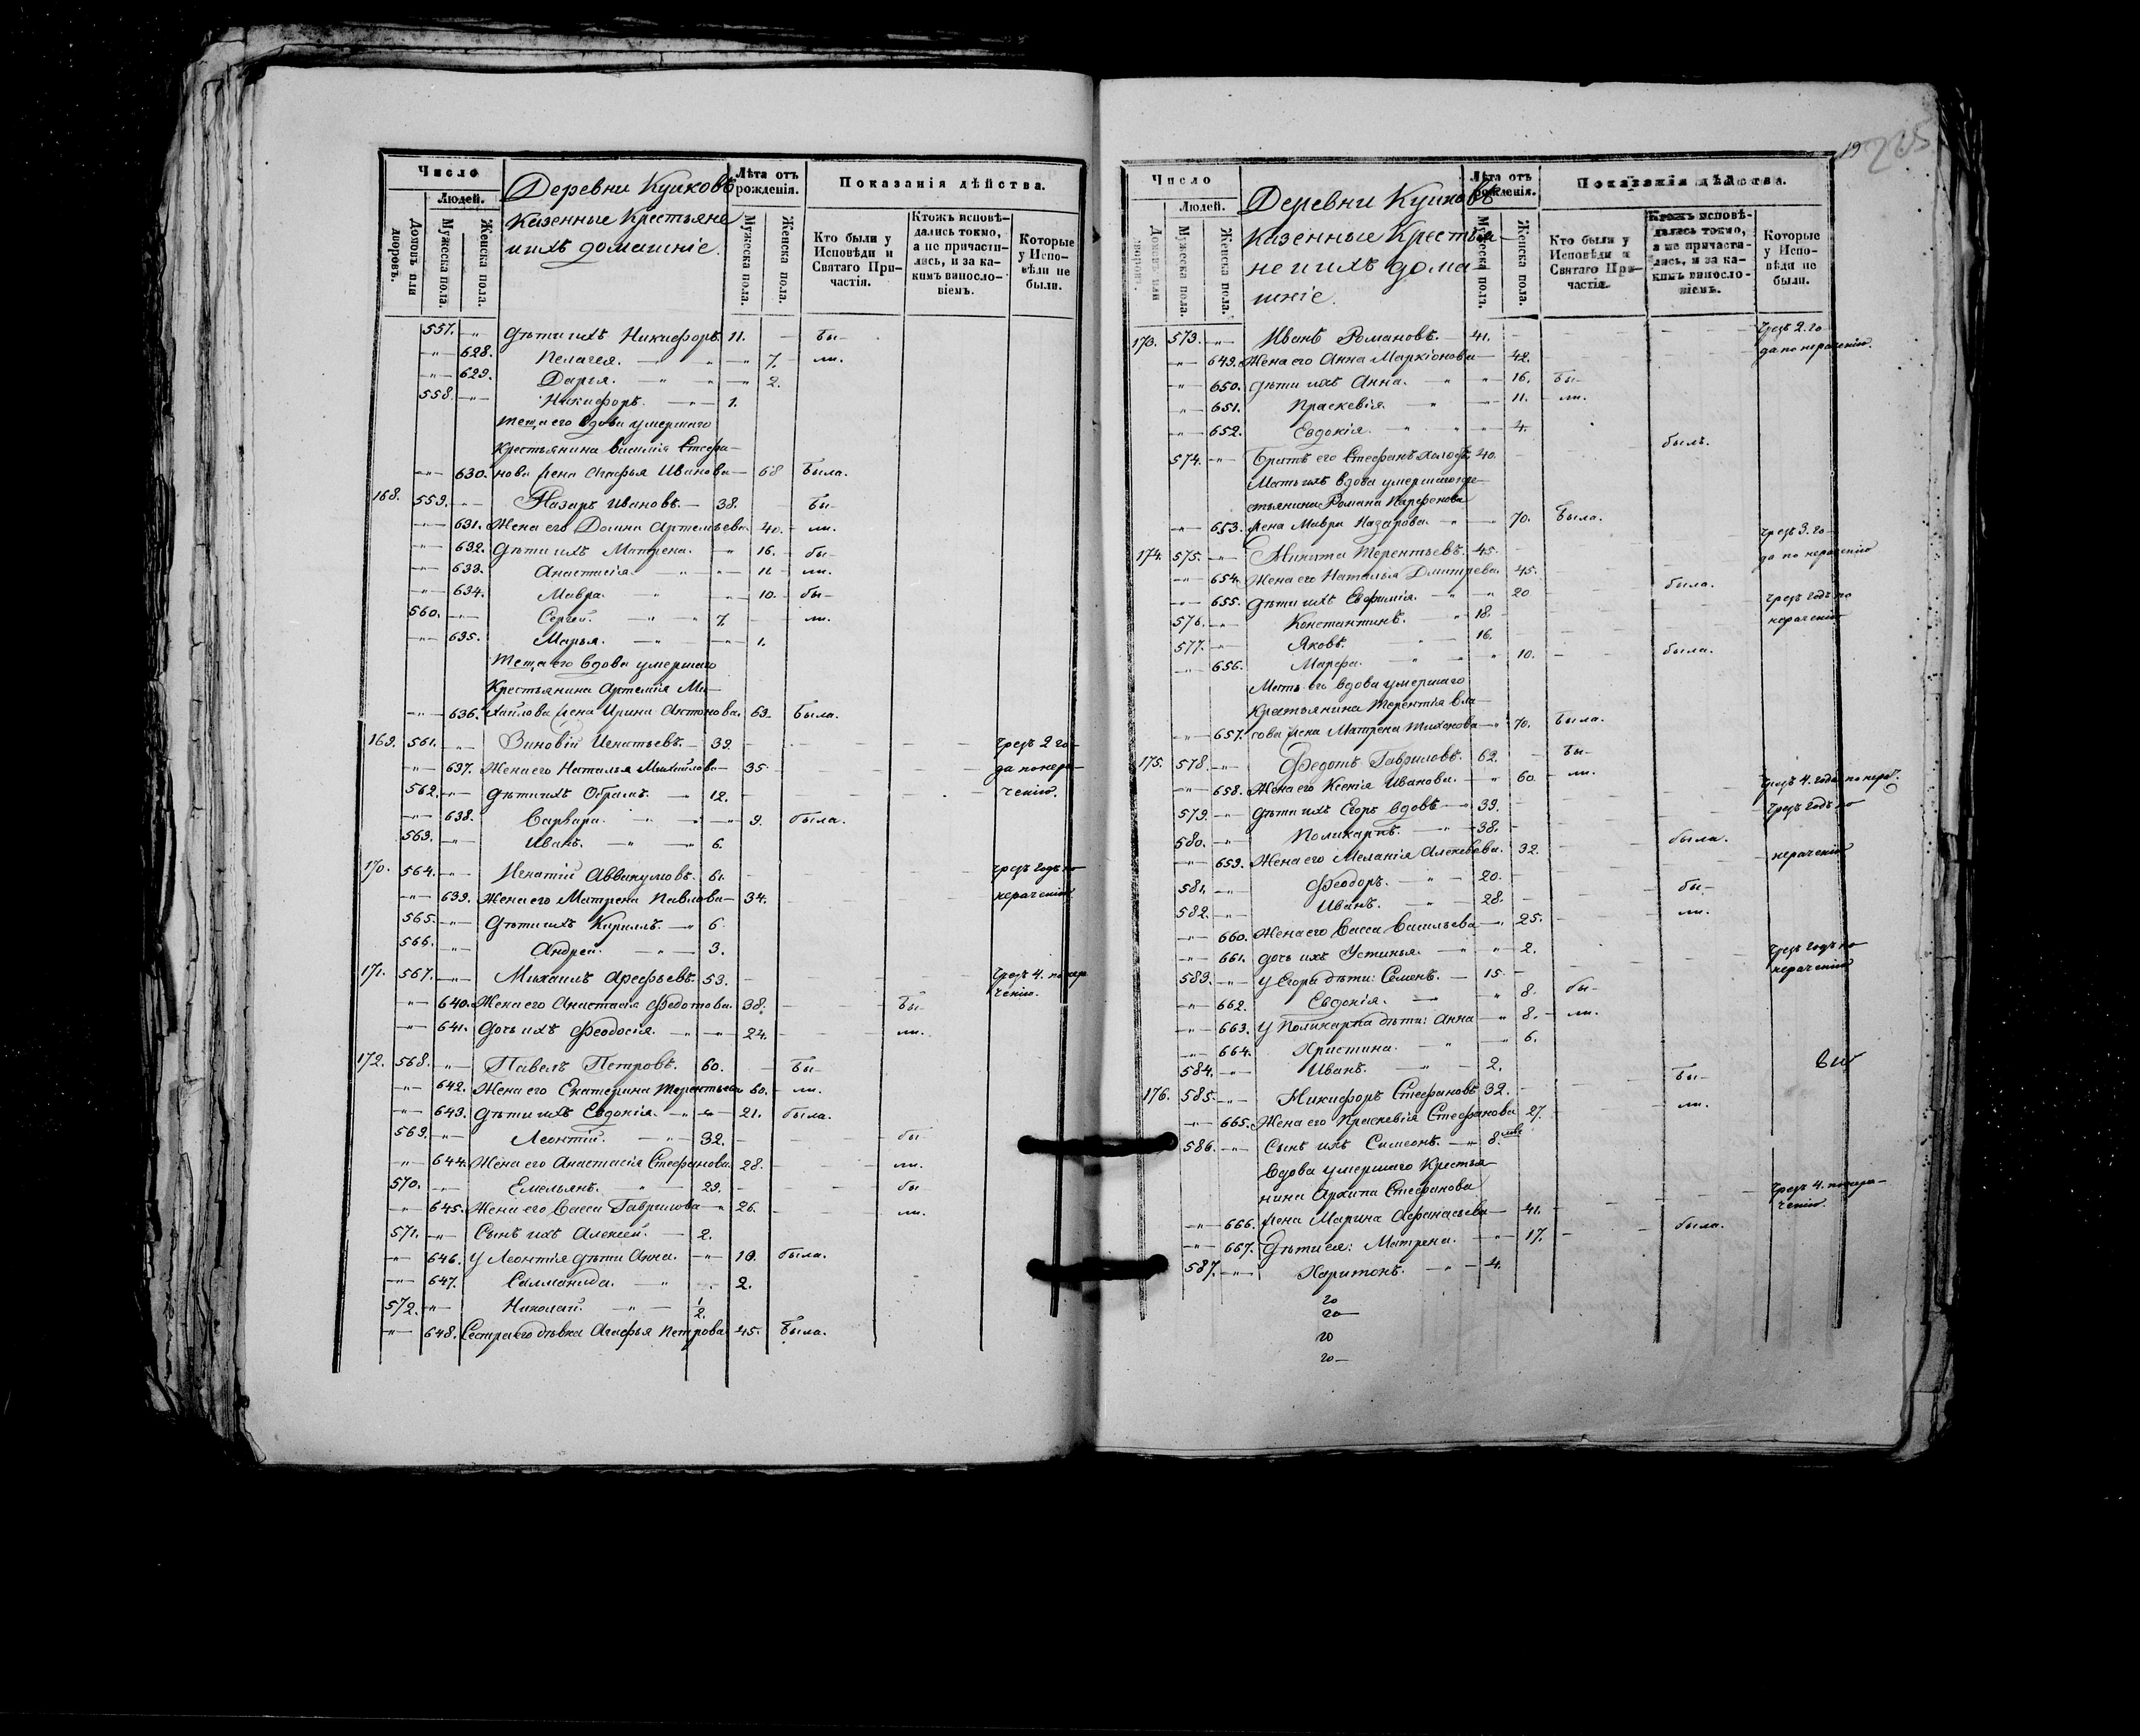 Число
Людей.
Домовъ или дворовъ.
Мужеска пола.
Женска пола.
Деревни Куликовъ
Казенные Крестьяне
и ихъ домашніе.
Лѣта отъ рожденія.
Мужеска пола.
Женска пола.
Показанія дѣйства.
Кто были у Исповѣди и Святаго Причастія.
Ктожъ исповѣ-
дались токмо,
а не причасти-
лись, и за ка-
кимъ винosло-
віемъ.
Которые
у Испо-
вѣди не
были.
557. Дѣти ихъ Никифоръ. 11. Бы-
628. Пелагея. 7. ли.
629. Дарья. 2.
558. Никифоръ. 1.
Теща его вдова умершаго
Крестьянина Василія Стефа-
630. нова жена Агафья Иванова 68 Была.
168. 559. Назаръ Ивановъ. 38. Бы-
631. Жена его Домна Артемьева. 40. ли.
632. Дѣти ихъ Матрена. 16. бы-
633. Анастасія. 11. ли.
634. Мавра. 10. бы-
560. Сергѣй. 7. ли.
635. Марья. 1.
Теща его вдова умершаго
Крестьянина Артемія Ми-
636. хайлова жена Ирина Антонова. 63. Была.
169. 561. Зиновій Игнатьевъ. 39. Чрезъ 2 го-
637. Жена его Наталья Михайлова 35. да по нера-
562. Дѣти ихъ Обрамъ. 12. ченію.
638. Варвара. 9. была.
563. Иванъ. 6.
170. 564. Игнатій Аввакумовъ. 61. Чрезъ годъ по
639. Жена его Матрена Павлова 34. нераченію
565. Дѣти ихъ Кириллъ. 6.
566. Андрей. 3.
171. 567. Михаилъ Арефьевъ. 53. Чрезъ 4. по нера
640. Жена его Анастасія Федотова. 38. Бы- ченію.
641. Дочь ихъ Феодосія. 24. ли.
172. 568. Павелъ Петровъ. 60. Бы-
642. Жена его Екатерина Терентьева 60. ли.
643. Дѣти ихъ Евдокія. 21. была.
569. Леонтій. 32. бы
644. Жена его Анастасія Стефанова. 28. ли.
570. Емельянъ. 29. бы
645. Жена его Васса Гаврилова 26. ли.
571. Сынъ ихъ Алексѣй. 2.
646. У Леонтія дѣти Анна. 10. была.
647. Саламанида. 2.
572. Николай. 1/2.
648. Сестра его дѣвка Агафья Петрова 45. Была.
19
205
Число
Людей.
Домовъ или дворовъ.
Мужеска пола.
Женска пола.
Деревни Куликовъ
Казенные Крестья-
не и ихъ дома-
шніе.
Лѣта отъ рожденія.
Мужеска пола.
Женска пола.
Показанія дѣйства.
Кто были у Исповѣди и Святаго Причастія.
Ктожъ исповѣ-
дались токмо,
а не причасти-
лись, и за ка-
кимъ винosло-
віемъ.
Которые
у Испо-
вѣди не
были.
173. 573. Иванъ Романовъ. 41. Чрезъ 2. го
649. Жена его Анна Маркіонова 42. да по нераченію.
650. Дѣти ихъ Анна. 16. Бы-
651. Праскевія. 11. ли.
652. Евдокія. 4.
574. Братъ его Стефанъ холостъ 40. былъ.
Мать ихъ вдова умершаго кре-
стьянина Романа Парфенова
653. жена Мавра Назарова. 70. Была.
174. 575. Никита Терентьевъ. 45. Чрезъ 3. го
654. Жена его Наталья Дмитрева. 45. да по нераченію
655. Дѣти ихъ Евфимія. 20 была.
576. Константинъ. 18. Чрезъ годъ по
577. Яковъ. 16. нераченію
656. Марфа. 10. была.
Мать его вдова умершаго
Крестьянина Терентія Вла-
657. сова жена Матрена Тихонова 70. Была.
175. 578. Федотъ Гавриловъ. 62. Бы-
658. Жена его Ксенія Иванова. 60. ли.
579. Дѣти ихъ Егоръ вдовъ 39. Чрезъ 4. года по нерач.
580. Поликарпъ. 38. Чрезъ годъ по
659. Жена его Меланія Алексѣева. 32. была. нераченію
581. Феодоръ. 20.
582. Иванъ. 28. бы-
660. Жена его Васса Васильева 25. ли.
661. дочь ихъ Устинья. 2.
583. У Егора дѣти: Семенъ. 15. Чрезъ годъ по нераченію
662. Евдокія. 8. бы-
663. У Поликарпа дѣти: Анна 8. ли.
664. Христина. 6.
584. Иванъ. 2.
176. 585. Никифоръ Стефановъ 32. Бы-
665. Жена его Праскевія Стефанова 27. ли.
586. Сынъ ихъ Симеонъ. 8.
Вдова умершаго Крестья
нина Архипа Стефанова
666. жена Марина Афанасьева 41. Чрезъ 4. по нера-
ченію.
667. Дѣти ея: Матрена. 17. была.
587. Харитонъ. 4.
20
20
20
20